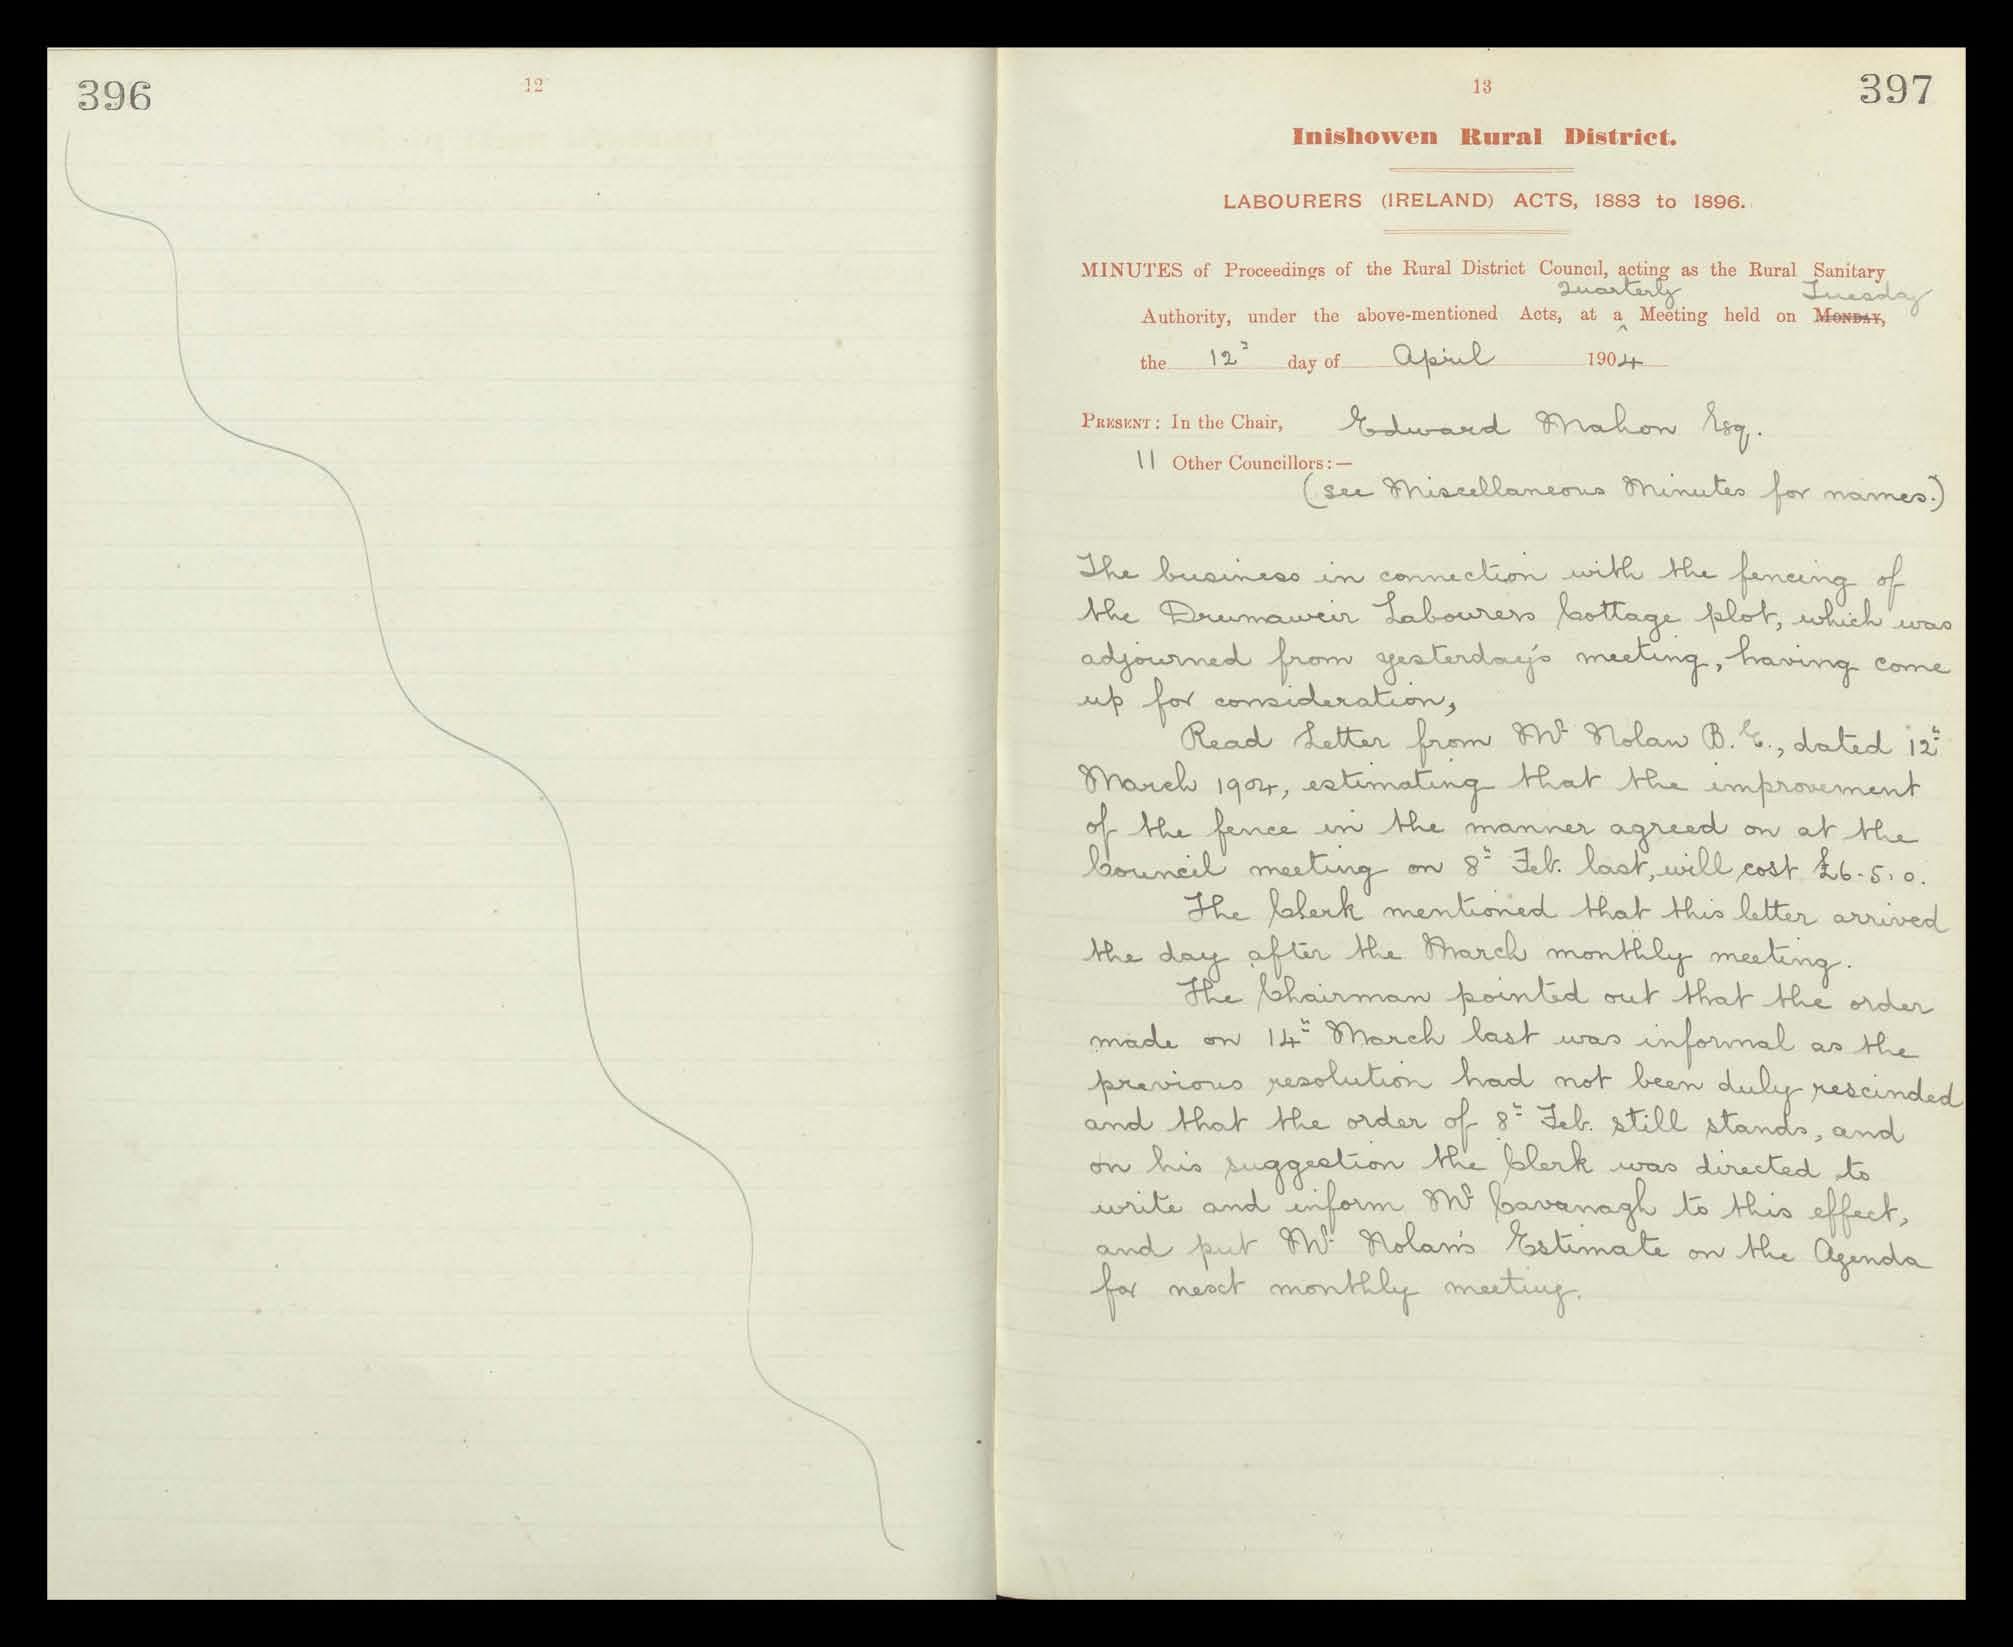 396
12
13
397
Inishowen Rural District.
LABOURERS (IRELAND) ACTS, 1883 to 1896.
MINUTES of Proceedings of the Rural District Council, acting as the Rural Sanitary
Quarterly Tuesday
Authority, under the above-mentioned Acts, at a ^ Meeting held on MONDAY,
the 12th day of April 1904
PRESENT: In the Chair, Edward Mahon Esq.
11 Other Councillors:—
(see Miscellaneous Minutes for names.)
The business in connection with the fencing of
the Drumaweir Labourers Cottage plot, which was
adjourned from yesterday's meeting, having come
up for consideration,
Read Letter from Mr Nolan B.E., dated 12th
March 1904, estimating that the improvement
of the fence in the manner agreed on at the
Council meeting on 8th Feb. last, will cost £6.5.0.
The Clerk mentioned that this letter arrived
the day after the March monthly meeting.
The Chairman pointed out that the order
made on 14th March last was informal as the
previous resolution had not been duly rescinded
and that the order of 8th Feb. still stands, and
on his suggestion the Clerk was directed to
write and inform Mr Cavanagh to this effect,
and put Mr. Nolan's Estimate on the Agenda
for next monthly meeting.